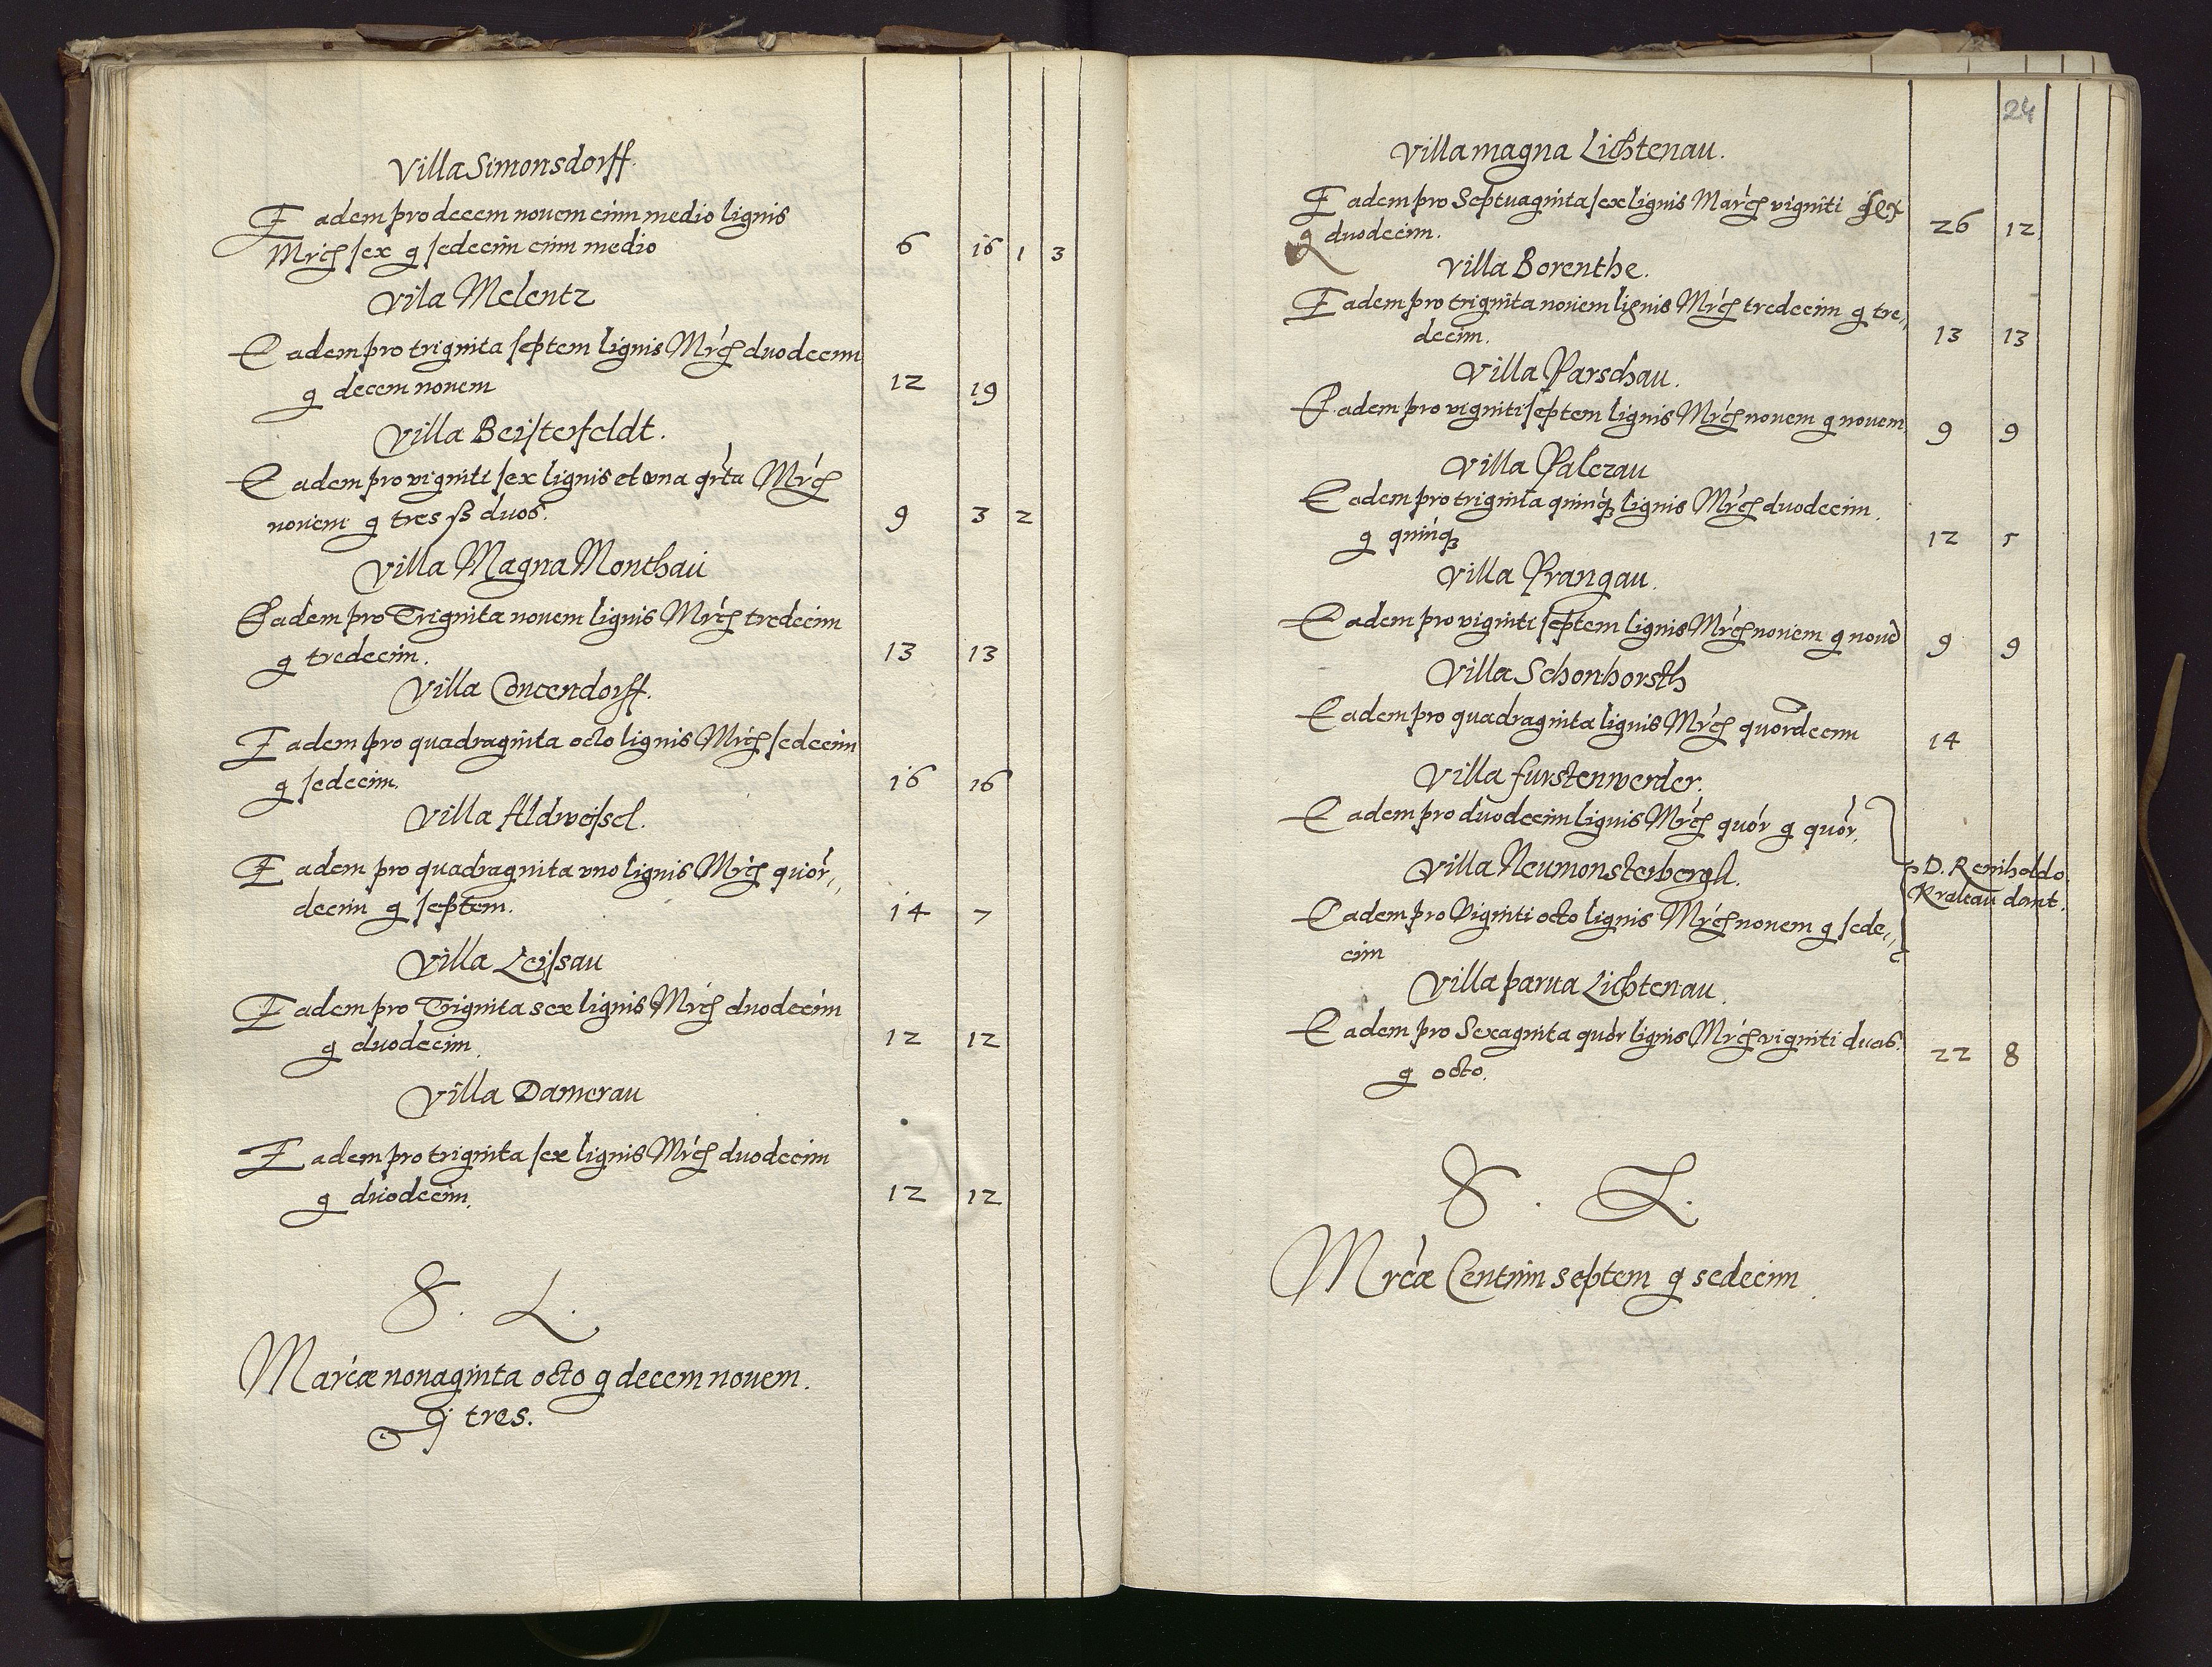 Villa Simonsdorff.
Eadem pro decem novem cum medio lignis
Mrcs sex g sedecim cum medio 6 16 1 3
Vila Melentz
Eadem pro triginta septem lignis Mrcs duodecim
g decem novem 12 19
Villa Beisterfeldt.
Eadem pro viginti sex lignis et una qrta Mrcs
novem g tres ß duos. 9 3 2
Villa Magna Monthaui
Eadem pro Triginta novem lignis Mrcs tredecim
g tredecim. 13 13
Villa Concendorff.
Eadem pro quadraginta octo lignis Mrcs sedecim
g sedecim. 16 16
Villa Aldweisel.
Eadem pro quadraginta uno lignis Mrcs quor„
decim g septem. 14 7
Villa Leisau
Eadem pro Triginta sex lignis Mrcs duodecim
g duodecim. 12 12
Villa Damerau
Eadem pro triginta sex lignis Mrcs duodecim
g duodecim. 12 12
S. L.
Marcæ nonaginta octo g decem novem.
tres.
24
Villa magna Lichtenau.
Eadem pro Septuaginta sex lignis Marcs viginti sex
g duodecim. 26 12
Villa Borenthe.
Eadem pro triginta novem lignis Mrcs tredecim g tre„
decim. 13 13
Villa Parschau.
Eadem pro viginti septem lignis Mrcs novem g novem 9 9
Villa Palczau
Eadem pro triginta quinq3 lignis Mrcs duodecim.
g quinq3 12 5
Villa Prangau.
Eadem pro viginti septem lignis Mrcs novem g nouē 9 9
Villa Schonhorsth
Eadem pro quadraginta lignis Mrcs quordecim 14
Villa furstenwerder.
Eadem pro duodecim lignis Mrcs quor g quor.
Villa Neumonsterbergk.
D. Reinholdo
Krakau dant.
Eadem pro Viginti octo lignis Mrcs novem g sede„
cim
Villa parua Lichtenau.
Eadem pro Sexaginta quor lignis Mrcs viginti duas.
g octo. 22 8
S. L.
Mrcæ Centum septem g sedecim.